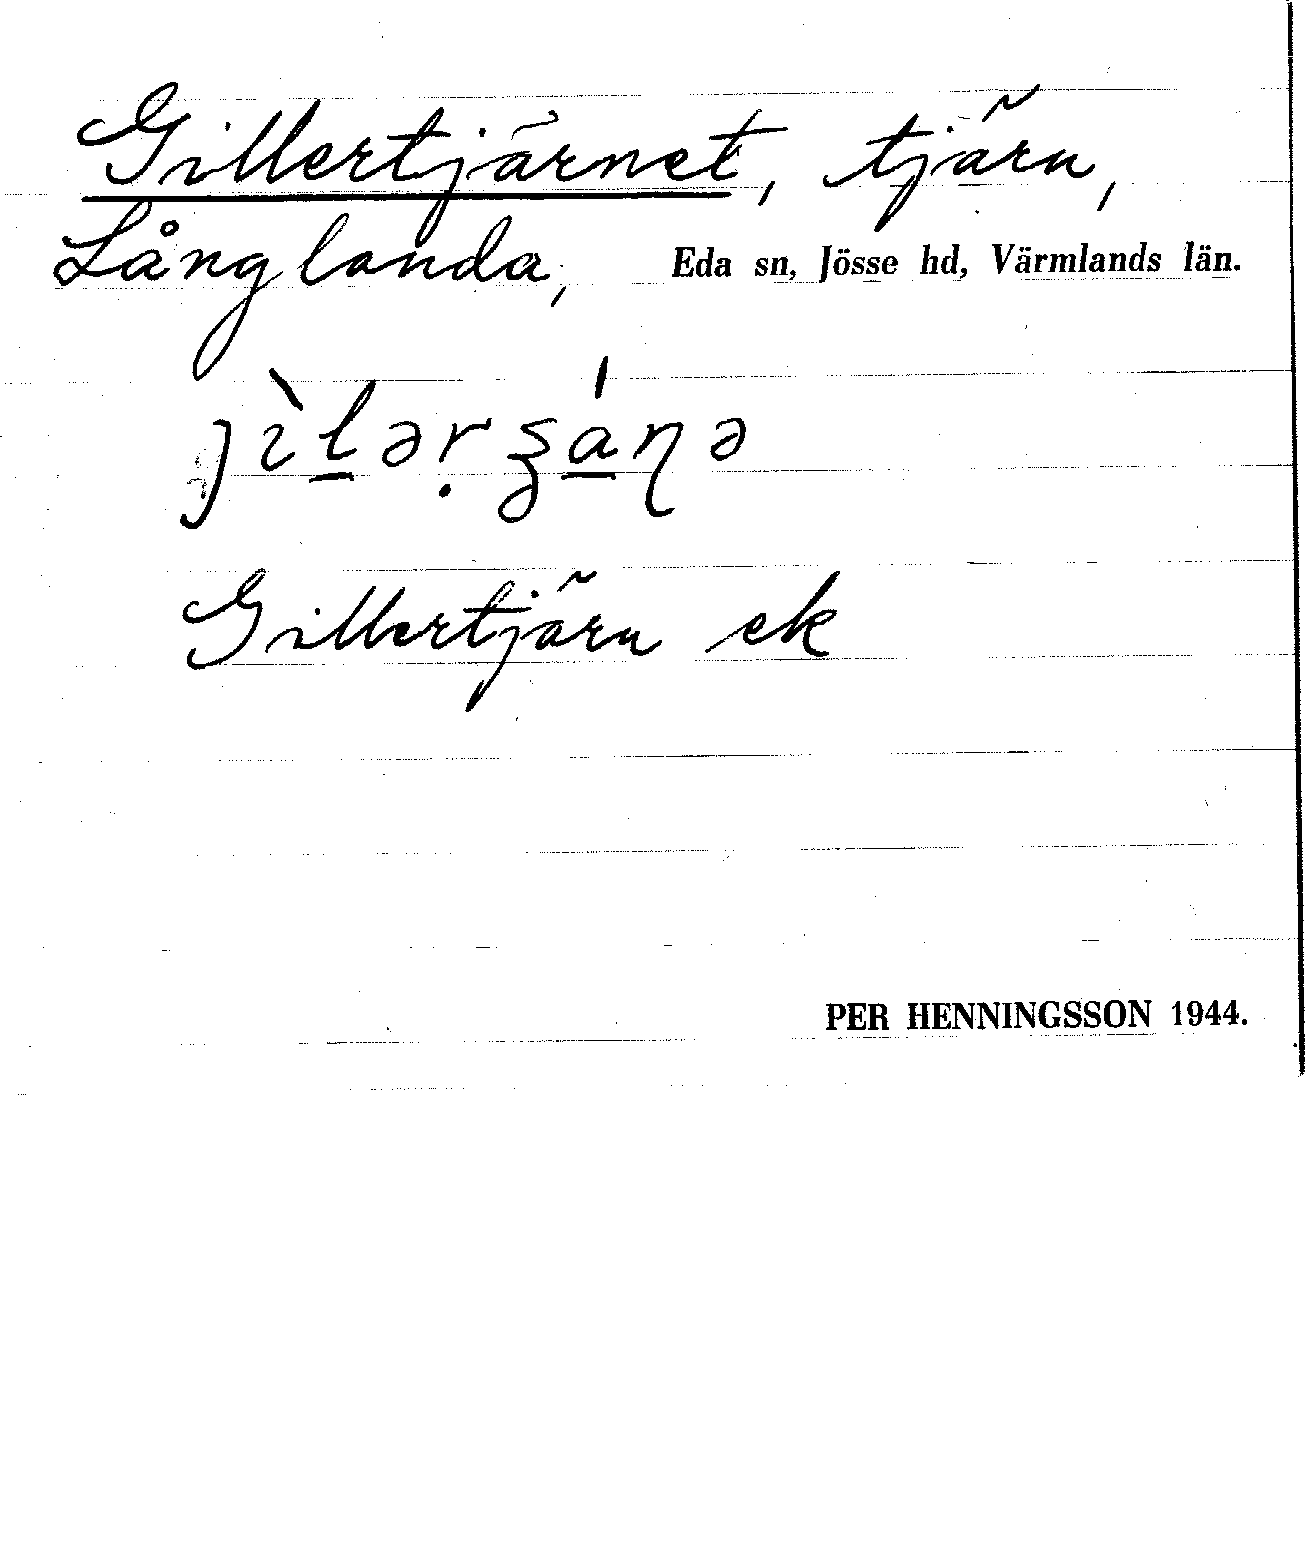 Gillertjärnet, tjärn,
Långlanda, Eda sn, Jösse hd, Värmlands län.
Gillertjärn ek
PER HENNINGSSON 1944.